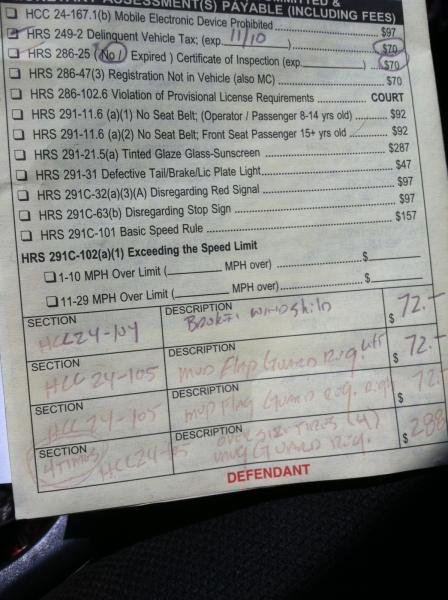 MONETARY ASSESSMENT(S) PAYABLE (INCLUDING FEES)
HCC 24-167.1(b) Mobile Electronic Device Prohibited $97
HRS 249-2 Delinquent Vehicle Tax; (exp. 11/10 ) $70
HRS 286-25 (No / Expired ) Certificate of Inspection (exp ) $70
HRS 286-47(3) Registration Not in Vehicle (also MC) $70
HRS 286-102.6 Violation of Provisional License Requirements COURT
HRS 291-11.6 (a)(1) No Seat Belt; (Operator / Passenger 8-14 yrs old) $92
HRS 291-11.6 (a)(2) No Seat Belt; Front Seat Passenger 15+ yrs old $92
HRS 291-21.5(a) Tinted Glaze Glass-Sunscreen $287
HRS 291-31 Defective Tail/Brake/Lic Plate Light $47
HRS 291C-32(a)(3)(A) Disregarding Red Signal $97
HRS 291C-63(b) Disregarding Stop Sign $97
HRS 291C-101 Basic Speed Rule $157
HRS 291C-102(a)(1) Exceeding the Speed Limit
1-10 MPH Over Limit ( MPH over) $
11-29 MPH Over Limit ( MPH over) $
SECTION DESCRIPTION
HCC24-104 WINDSHILD $ 72.-
SECTION DESCRIPTION
HCC 24-105 MUD Flap GUARD Rеq $ 72.-
SECTION DESCRIPTION
HCC 24-105 MUD Flap GUARD $ 72.-
SECTION DESCRIPTION
4 TIMES HCC24- OVERSIZE TIRES (4) $ 288
GUARD
DEFENDANT